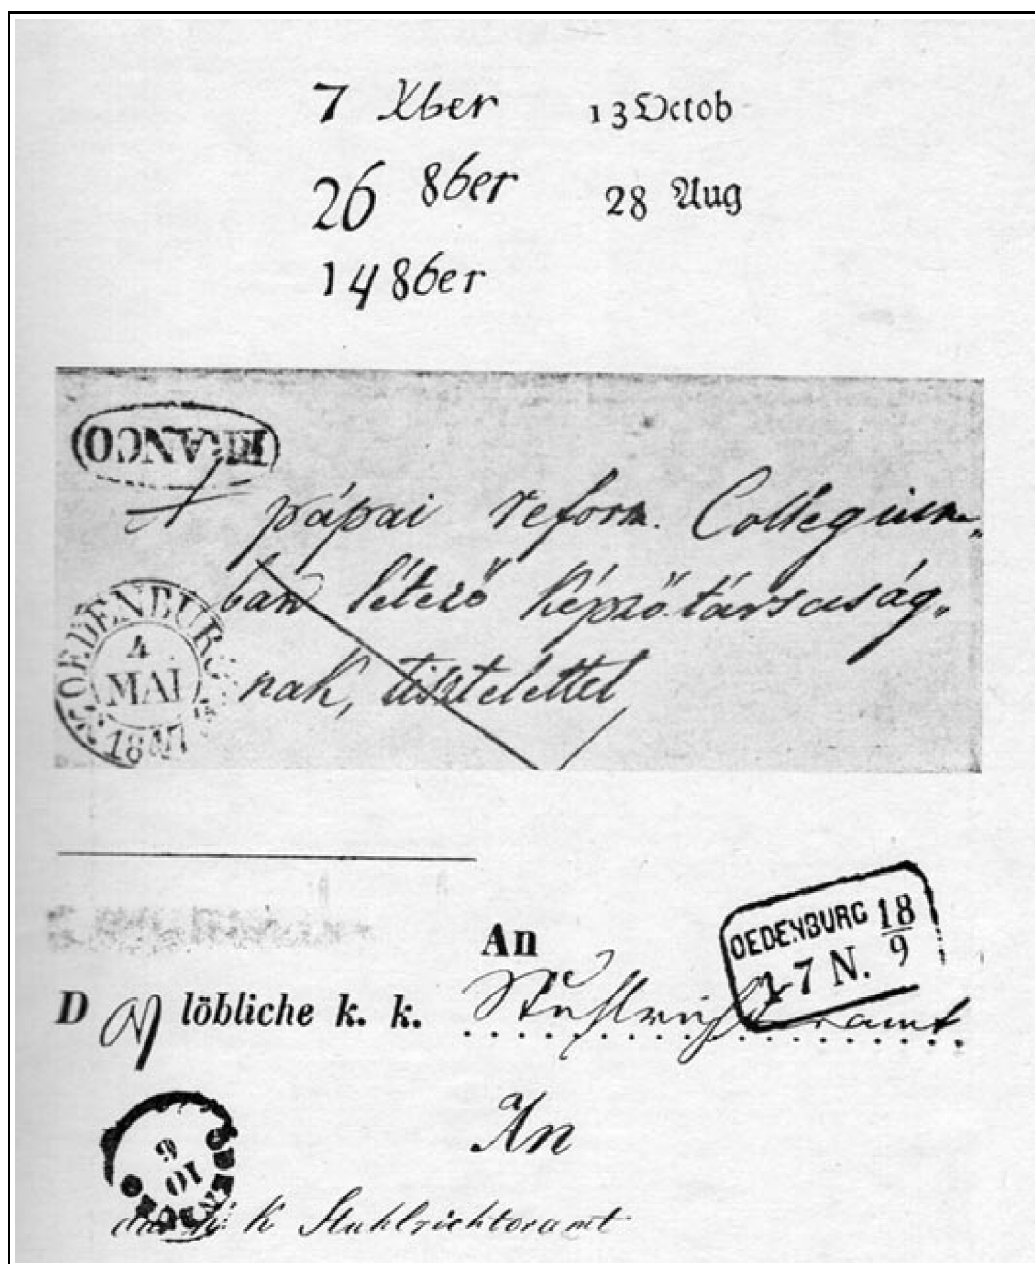 7 Xber 13 Octob
26 8ber 28 Aug
14 8ber
FRANCO
A pápai reform. Collégium-
ban létező képző társaság-
nak, tisztelettel
OEDENBURG
4
MAI
An
OEDENBURG 18/9
17 N.
D as löbliche k. k. Stuhlrichteramt
An
K Stuhlrichteramt